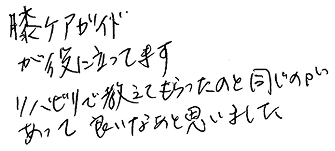 膝ケアガイド
が役に立ってます
リハビリで教えてもらったのと同じのが
あって 良いなあと思いました